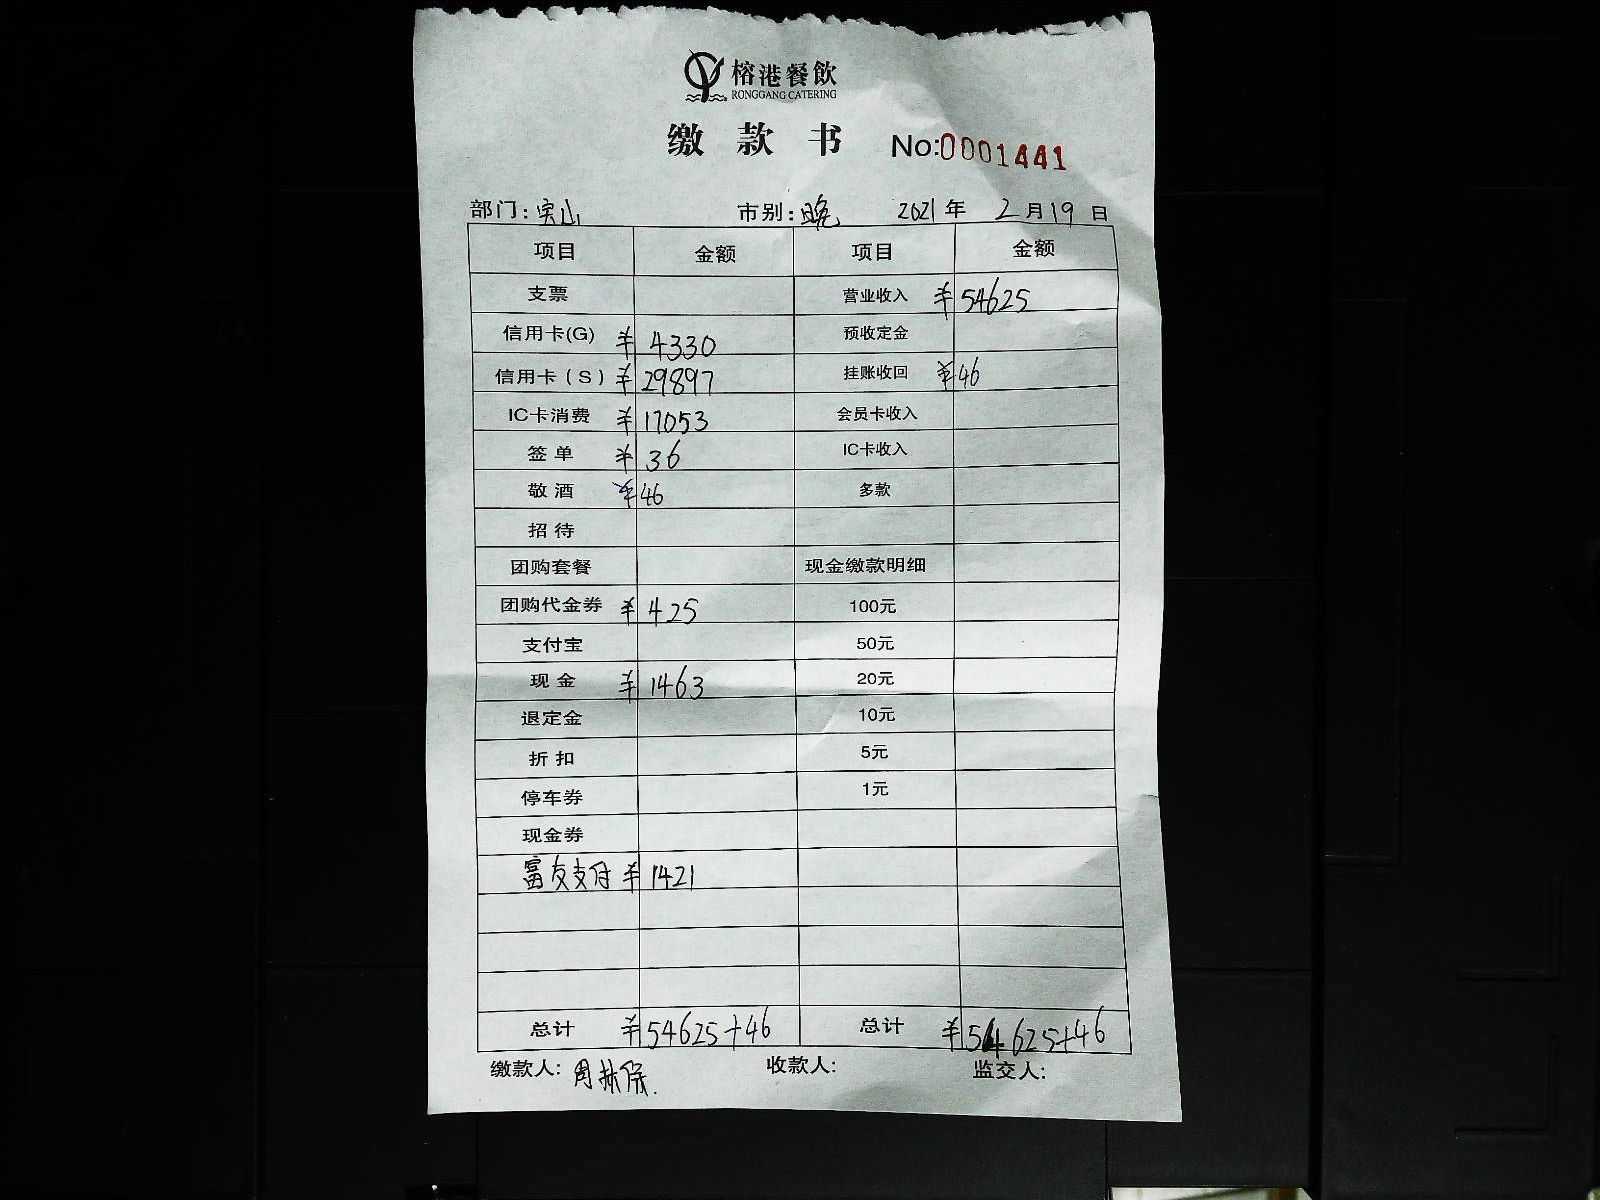 榕港餐飲
RONGGANG CATERING
缴款书 No:0001441
部门:宝山 市别:晚 2021年 2月19日
项目 金额 项目 金额
支票 营业收入 ¥54625
信用卡(G) ¥4330 预收定金
信用卡(S) ¥29897 挂账收回 ¥46
IC卡消费 ¥17053 会员卡收入
签单 ¥36 IC卡收入
敬酒 ¥46 多款
招待
团购套餐 现金缴款明细
团购代金券 ¥425 100元
支付宝 50元
现金 ¥1463 20元
退定金 10元
折扣 5元
停车券 1元
现金券
富友支付 ¥1421
总计 ¥54625+46 总计 ¥54625+46
缴款人:周林保. 收款人: 监交人: